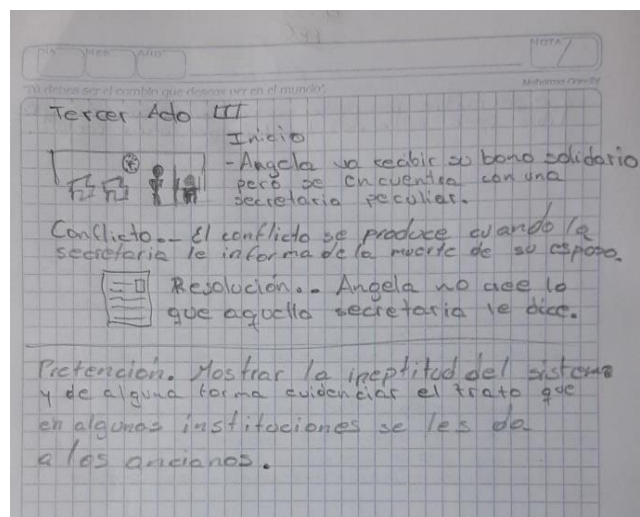 DIA MES AÑO NOTA
"Tú debes ser el cambio que deseas ver en el mundo". Mahatma Gandhi
Tercer Acto III
Inicio
- Angela va recibir su bono solidario
pero se encuentra con una
secretaria peculiar.
Conflicto.- El conflicto se produce cuando la
secretaria le informa de la muerte de su esposo.
Resolución.- Angela no cree lo
que aquella secretaria le dice.
Pretención. Mostrar la ineptitud del sistema
y de alguna forma evidenciar el trato que
en algunas instituciones se les da
a los ancianos.